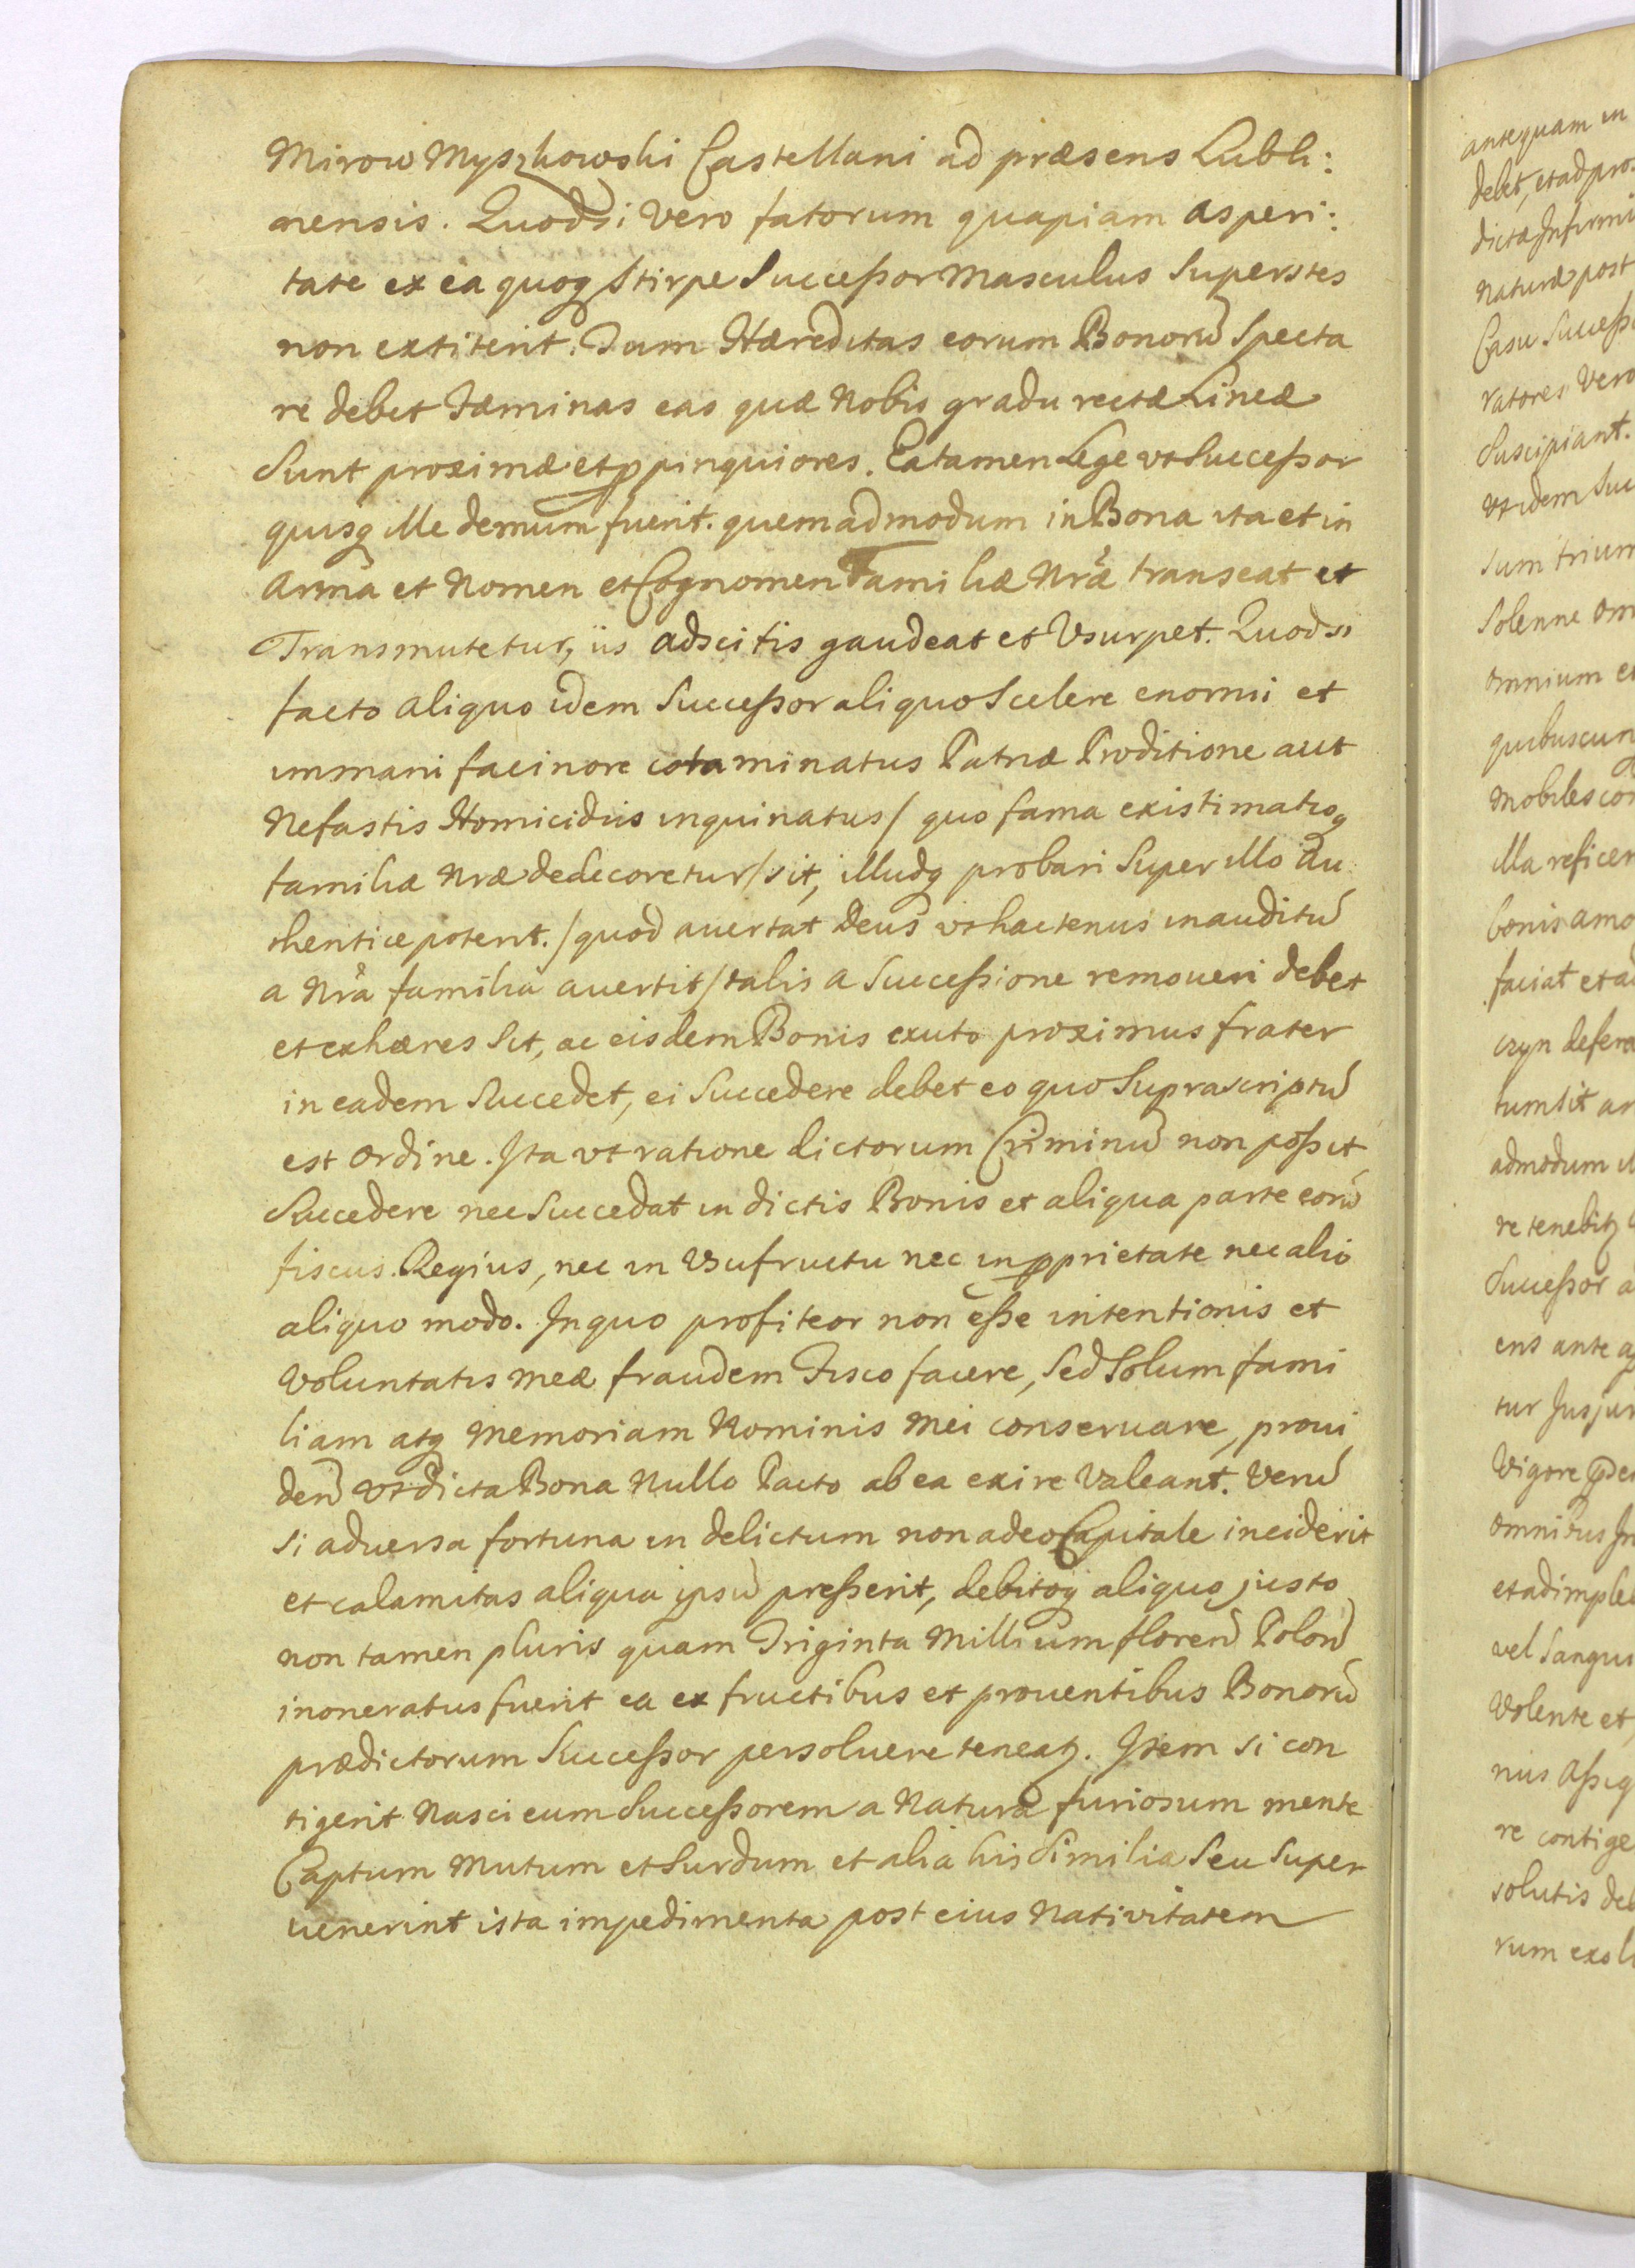 Mirow Myszkowski Castellani ad præsens Lubli:
nensis. Quodsi Vero fatorum quapiam asperi:
tate ex ea quoq Stirpe Successor Masculus Superstes
non extiterit. Tum Hæreditas eorum Bonorū Specta
re debet Fæminas eas quæ Nobis gradu rectæ Lineæ
Sunt proximæ et ꝓpinquiores. Ea tamen Lege vt Successor
quisq ille demum fuerit. quemadmodum in Bona ita et in
Arma et Nomen et Cognomen Familiæ Nræ transeat et
Transmutetur, iis adscitis gaudeat et Vsurpet. Quodsi
facto aliquo idem Successor aliquo Scelere enormi et
immani facinore cotaminatus Patriæ Proditione aut
Nefastis Homicidiis inquinatus / quo fama existimatioq
familiæ Nræ dedecoretur / sit, illudq probari Super illo Au
thentice poterit. / quod auertat Deus vt hactenus inauditū
a Nrâ familiâ auertit / talis a Successione remoueri debet
et exhæres Sit, ac eisdem Bonis exuto proximus frater
in eadem Succedet, ei Succedere debet eo quo Suprascriptū
est Ordine. Ita vt ratione dictorum Criminū non possit
Succedere nec Succedat in dictis Bonis et aliqua parte eorū
fiscus Regius, nec in Vsufructu nec in ꝓprietate nec alio
aliquo modo. In quo profiteor non esse intentionis et
Voluntatis meæ fraudem Fisco facere, Sed Solum fami
liam atq Memoriam Nominis Mei conseruare, proui
dend̄ vt dicta Bona Nullo Pacto ab ea exire Valeant. Verū
si aduersa fortuna in delictum non adeo Capitale inciderit
et calamitas aliqua ipsū presserit, debitoq aliquo justo
non tamen pluris quam Triginta Millium floren̄ Polon̄
inoneratus fuerit ea ex fructibus et prouentibus Bonorū
prædictorum Successor persoluere teneatꝫ. Item si con
tigerit Nasci eum Successorem a Naturâ furiosum mente
Captum Mutum et Surdum et alia his Similia Seu Super
uenerint ista impedimenta post eius Nativitatem
antequam in
debet, et ad pro
dictæ Infirmi
Naturæ post
Casu Success
ratores Vero
Suscipiant.
Vt idem Suc
sum trium
Solenne om
omnium et
quibuscunq
Mobiles con
illa reficer
bonis amo
faciat et ad
tum sit ar
admodum il
re tenebitꝫ
Successor a
ens ante a
tur Jusjur
Vigore
Omnibus In
et adimple
vel Sangui
Volente et
nus Assig
re contige
solutis deb
rum exol